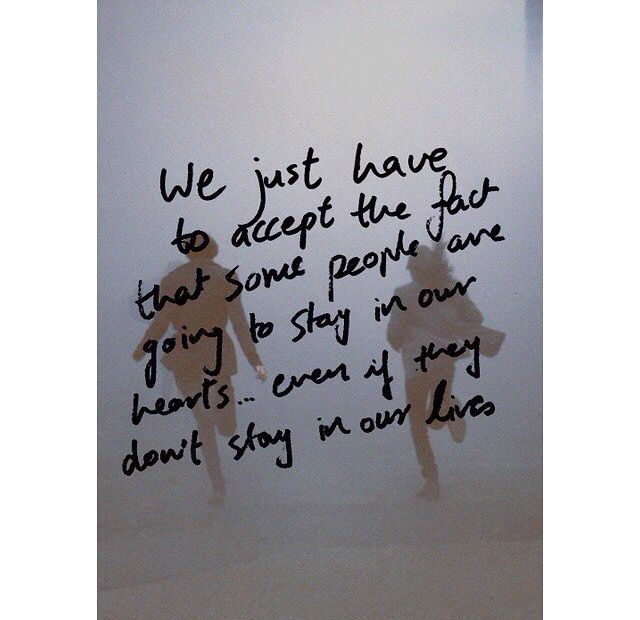 We just have
to accept the fact
that some people are
going to stay in our
hearts... even if they
don't stay in our lives